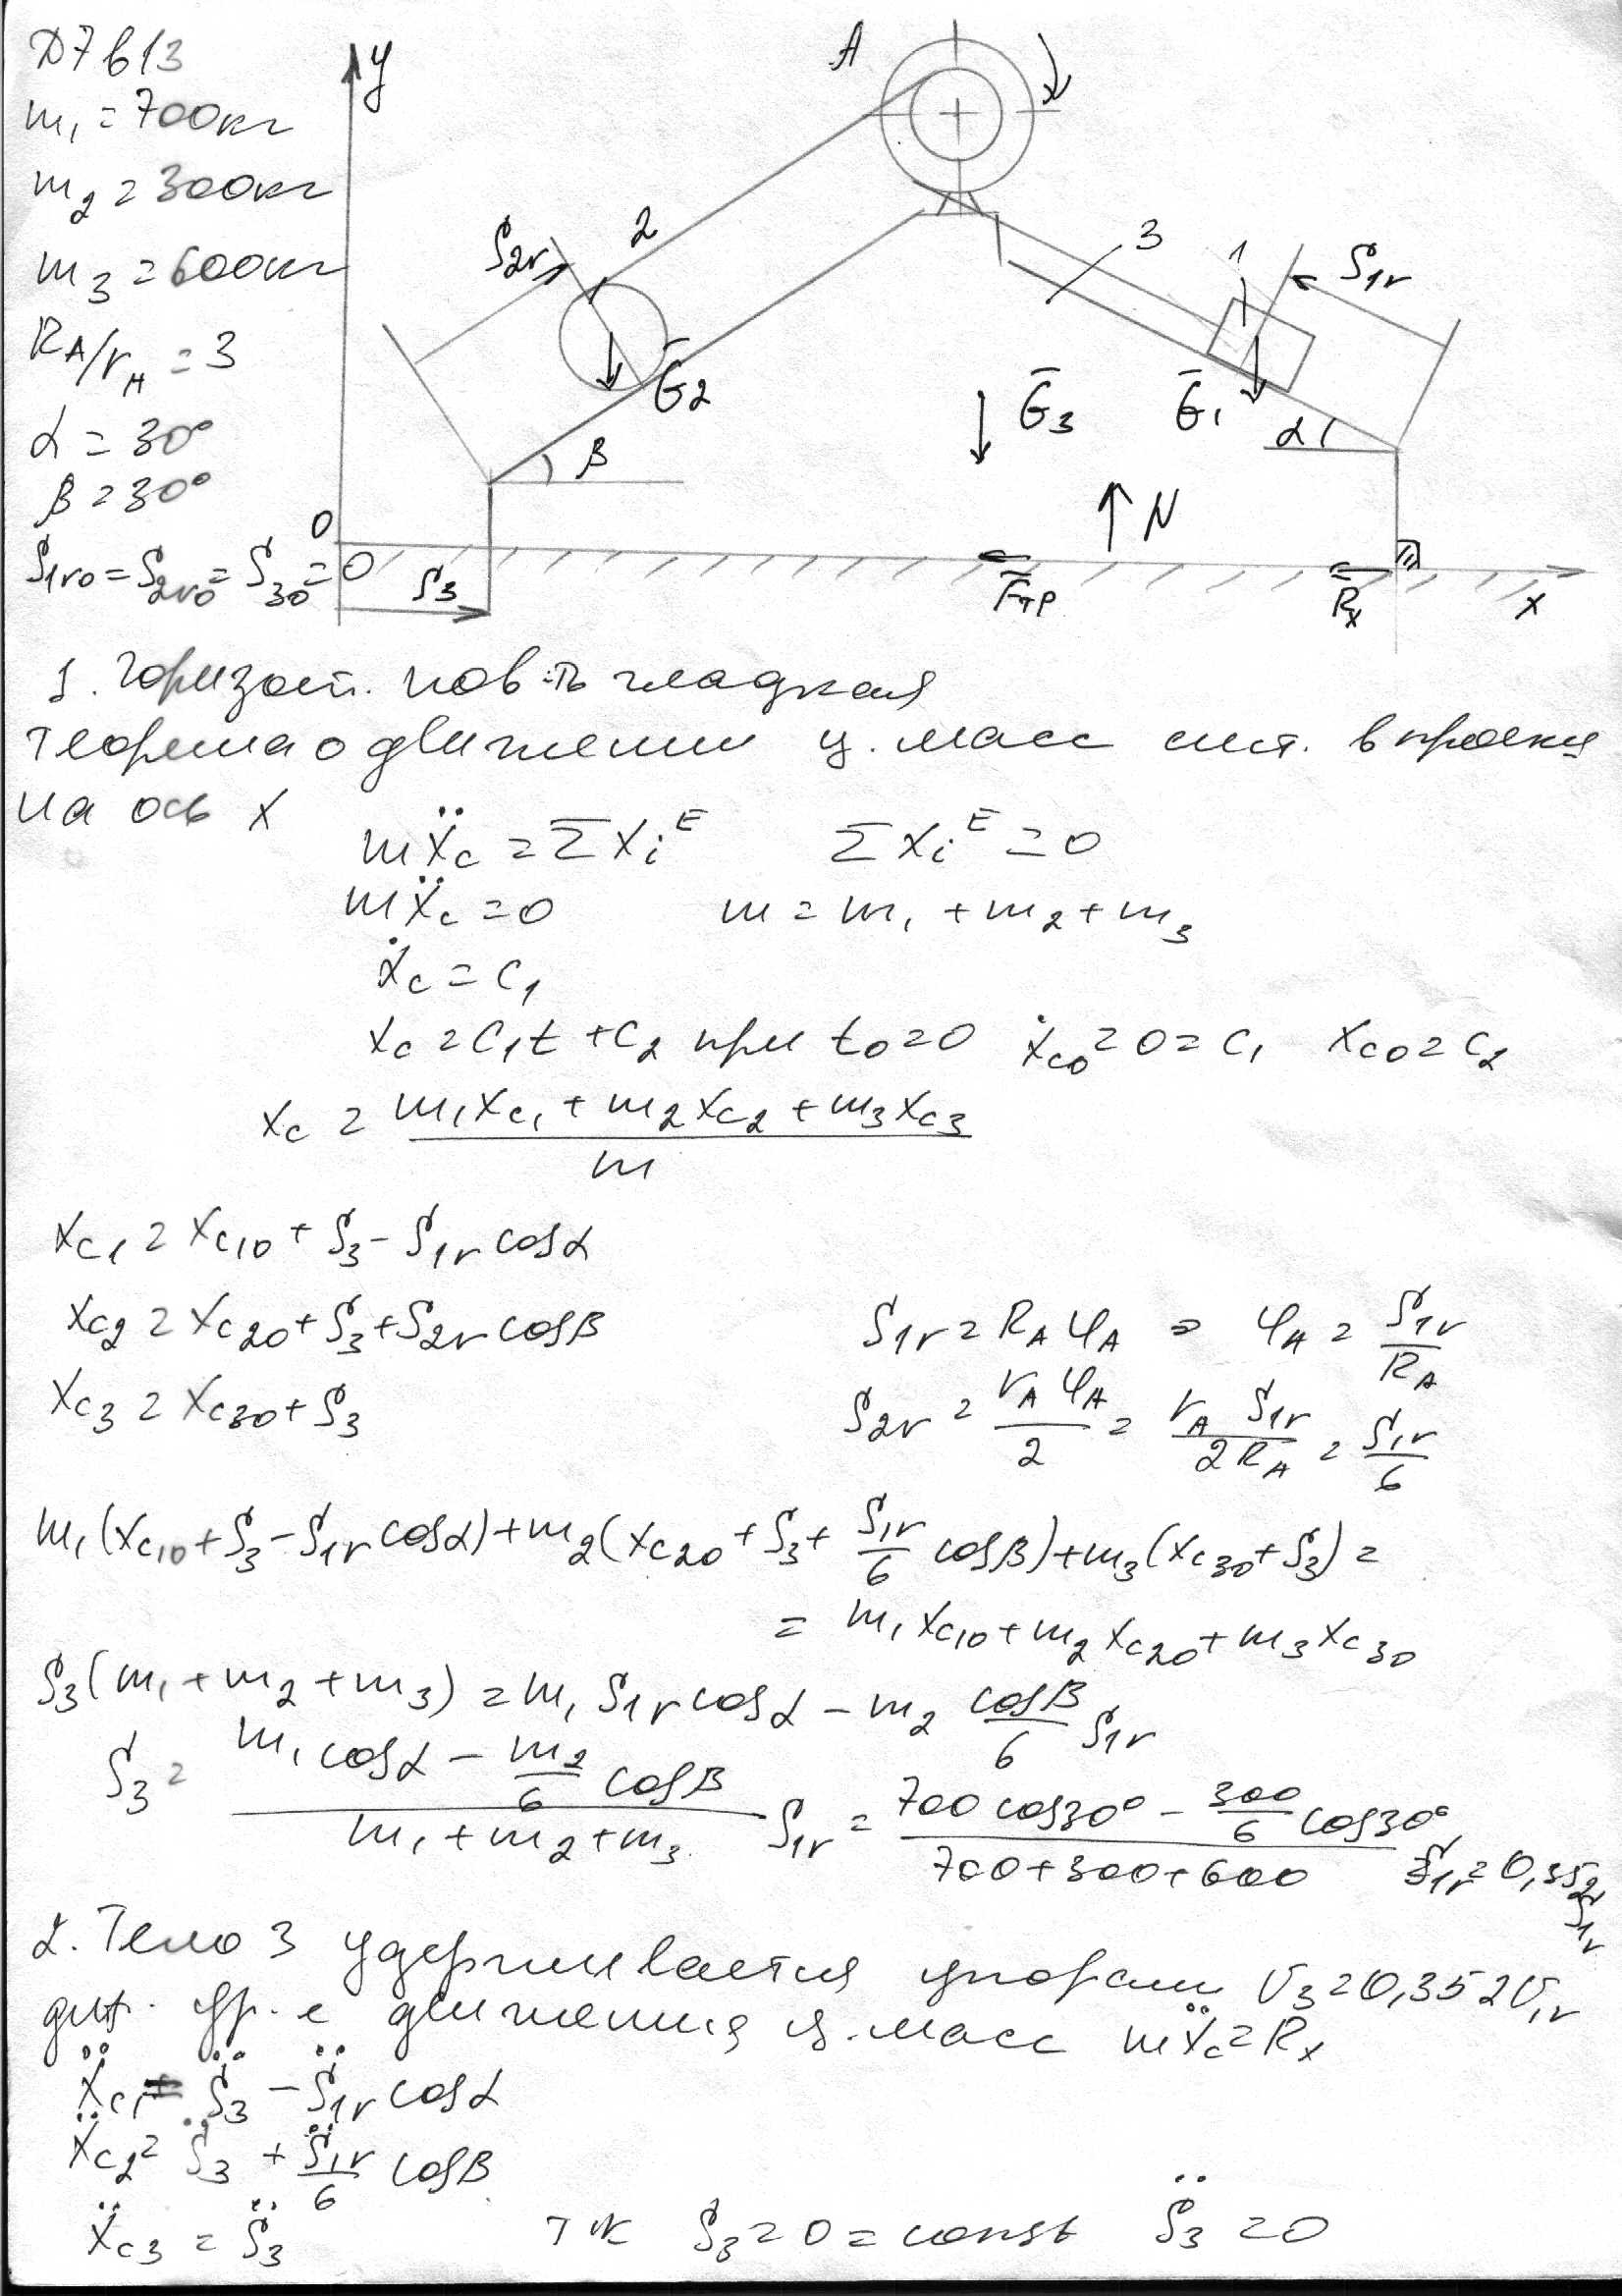 Д7 в13
m₁ = 700кг
m₂ = 300кг
m₃ = 600кг
R_A/r_A = 3
α = 30°
β = 30°
S₁r₀ = S₂r₀ = S₃₀ = 0
y
A
2
S₂r
3
1
S₁r
G̅₂
G̅₃
G̅₁
α
β
N
0
S₃
F̅тр
R̅x
x
1. Горизонт. пов-ть гладкая
теорема о движении ц. масс сист. в проекц
на ось x
mẍc = Σxᵢᴱ   Σxᵢᴱ = 0
mẍc = 0   m = m₁ + m₂ + m₃
ẋc = C₁
xc = C₁t + C₂ при t₀ = 0   ẋc₀ = 0 = C₁   xc₀ = C₂
xc = (m₁xc₁ + m₂xc₂ + m₃xc₃)/m
xc₁ = xc₁₀ + S₃ - S₁r cosα
xc₂ = xc₂₀ + S₃ + S₂r cosβ   S₁r = R_A φ_A ⇒ φ_A = S₁r/R_A
xc₃ = xc₃₀ + S₃   S₂r = r_A φ_A/2 = r_A S₁r/2R_A = S₁r/6
m₁(xc₁₀ + S₃ - S₁r cosα) + m₂(xc₂₀ + S₃ + S₁r/6 cosβ) + m₃(xc₃₀ + S₃) =
= m₁xc₁₀ + m₂xc₂₀ + m₃xc₃₀
S₃(m₁ + m₂ + m₃) = m₁ S₁r cosα - m₂ cosβ/6 S₁r
S₃ = (m₁cosα - m₂/6 cosβ)/(m₁ + m₂ + m₃) S₁r = (700cos30° - 300/6 cos30°)/(700 + 300 + 600) S₁r = 0,352 S₁r
2. Тело 3 удерживается упорами   v₃ = 0,352v₁r
диф. ур-е движения ц. масс mẍc = Rx
ẍc₁ = S̈₃ - S̈₁r cosα
ẍc₂ = S̈₃ + S̈₁r/6 cosβ
ẍc₃ = S̈₃   т к S₃ = 0 = const   S̈₃ = 0